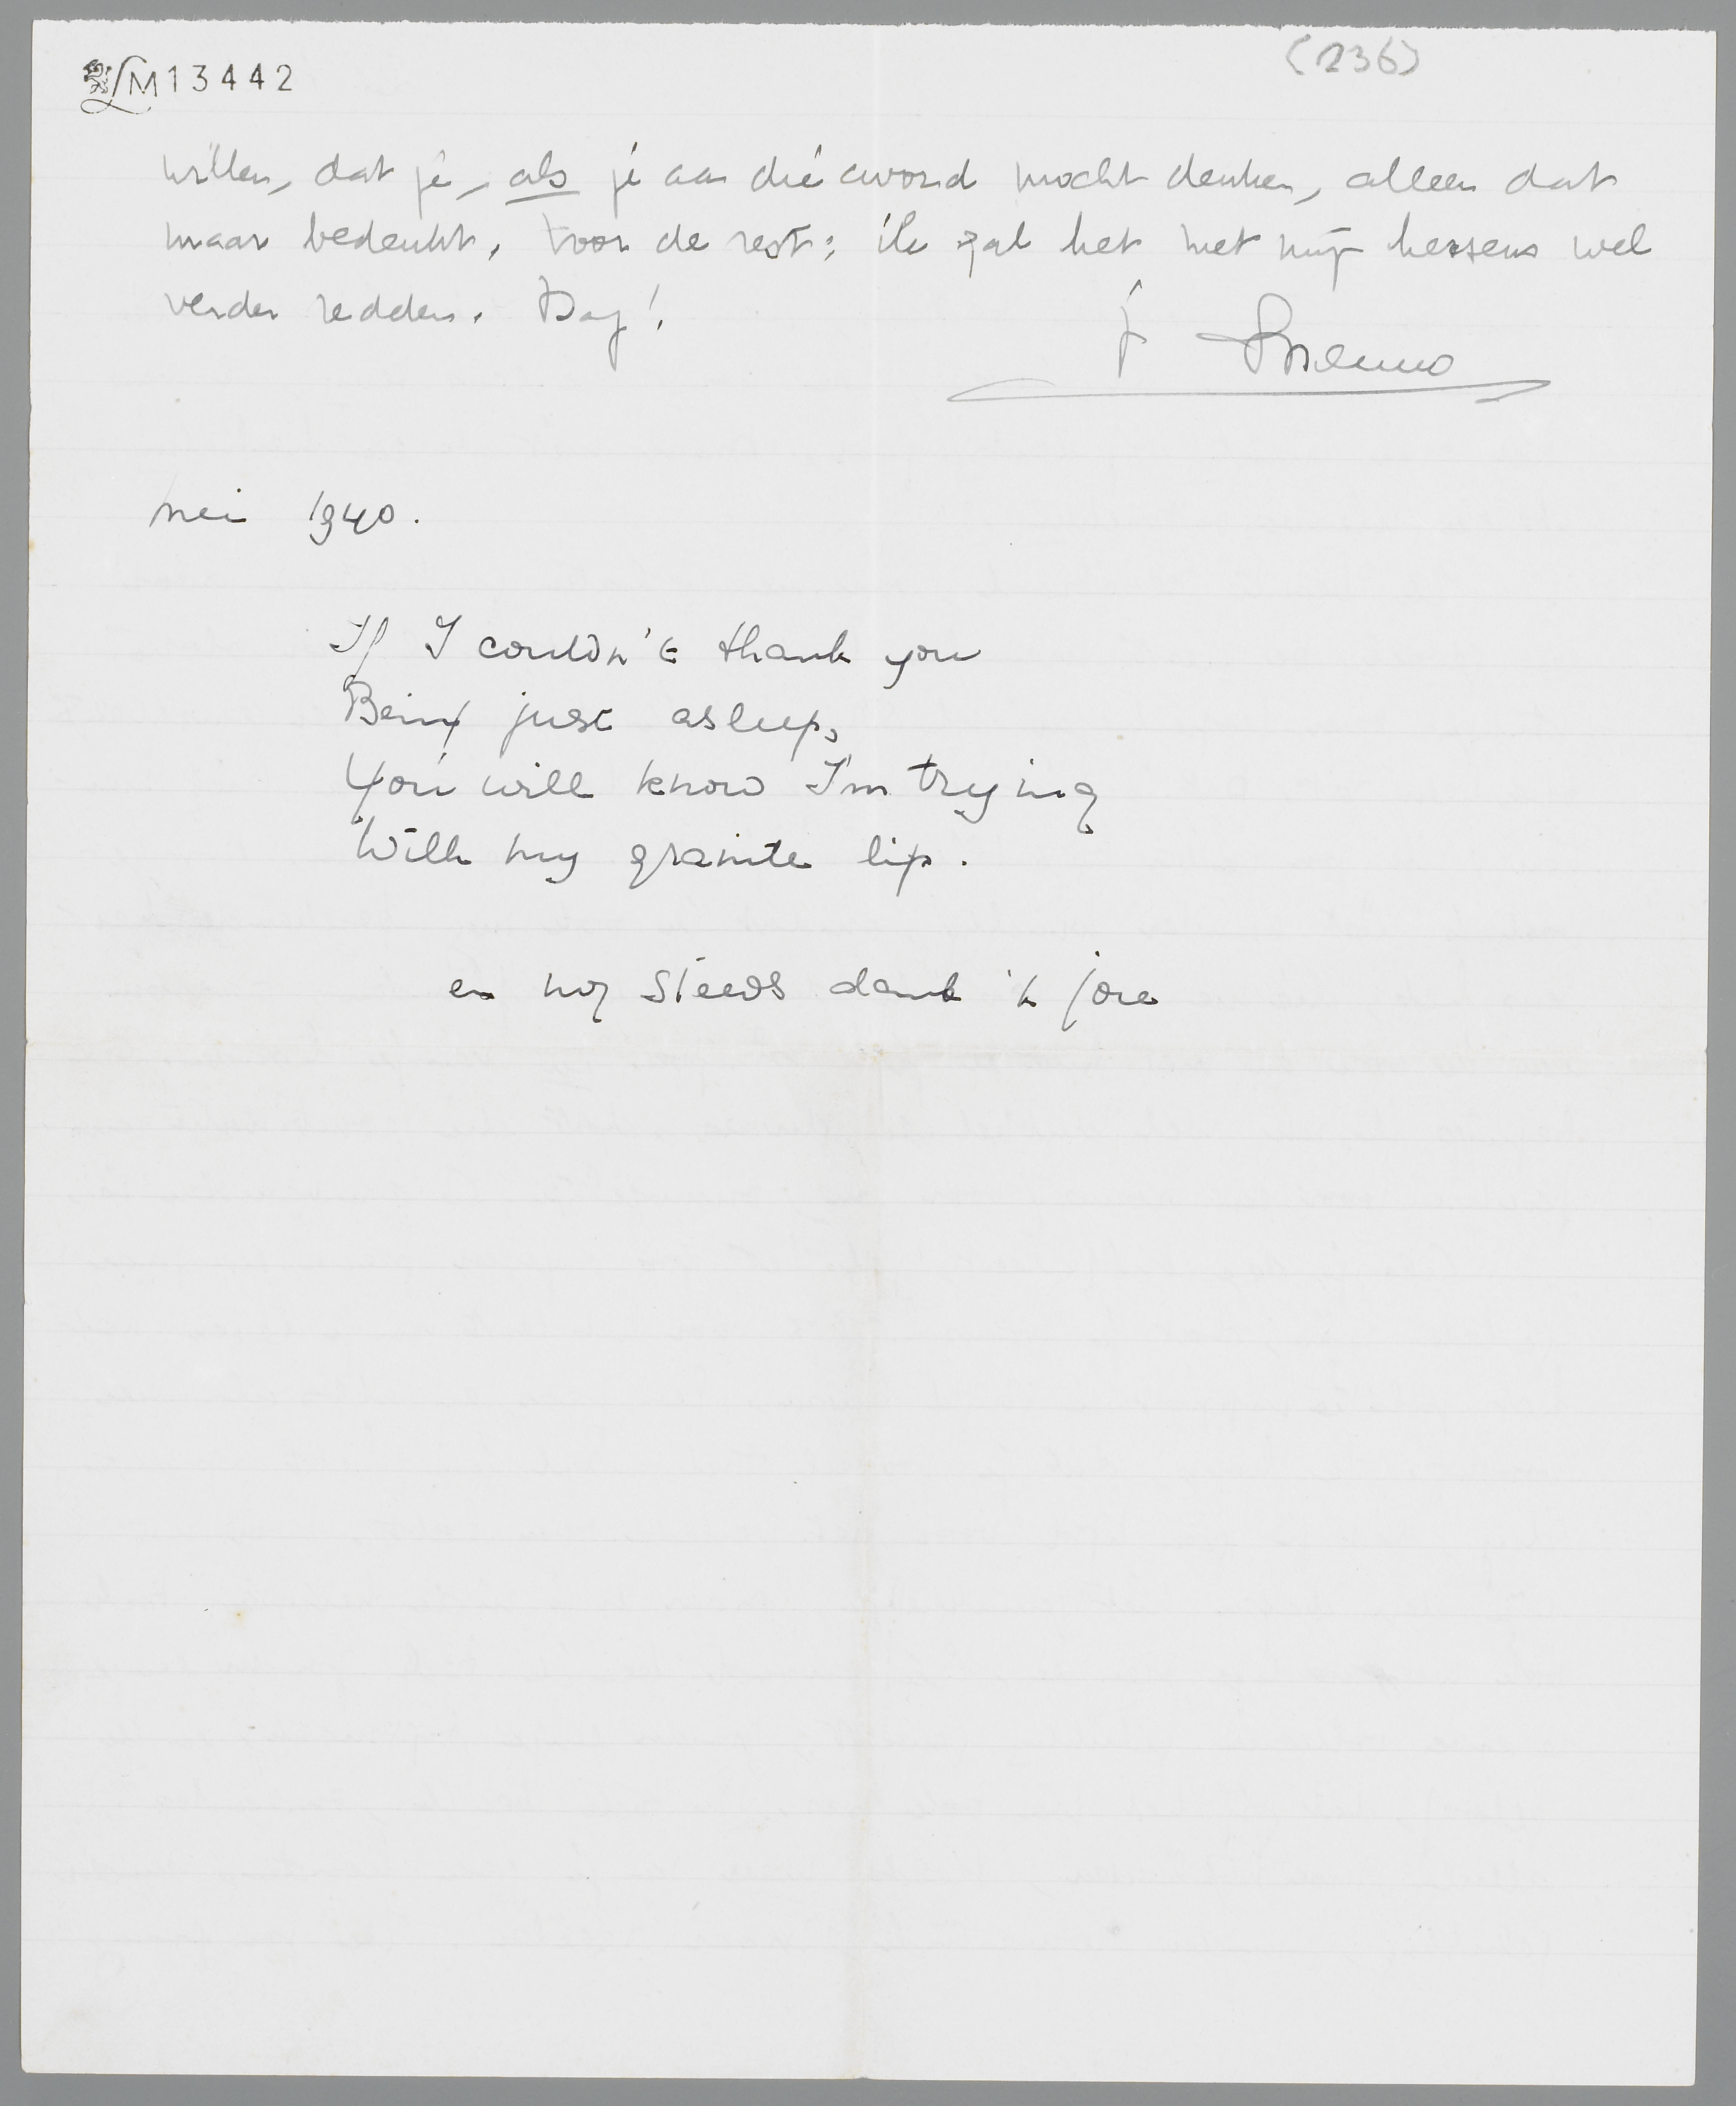 LM 13442
(236)
willen, dat je, als je aan die avond mocht denken, alleen dat
maar bedenkt. Voor de rest: ik zal het met mijn hersens wel
verder redden. Dag!
je Menno
mei 1940.
If I couldn't thank you
Being just asleep,
You will know I'm trying
With my granite lip.
en nog steeds dank ik jou